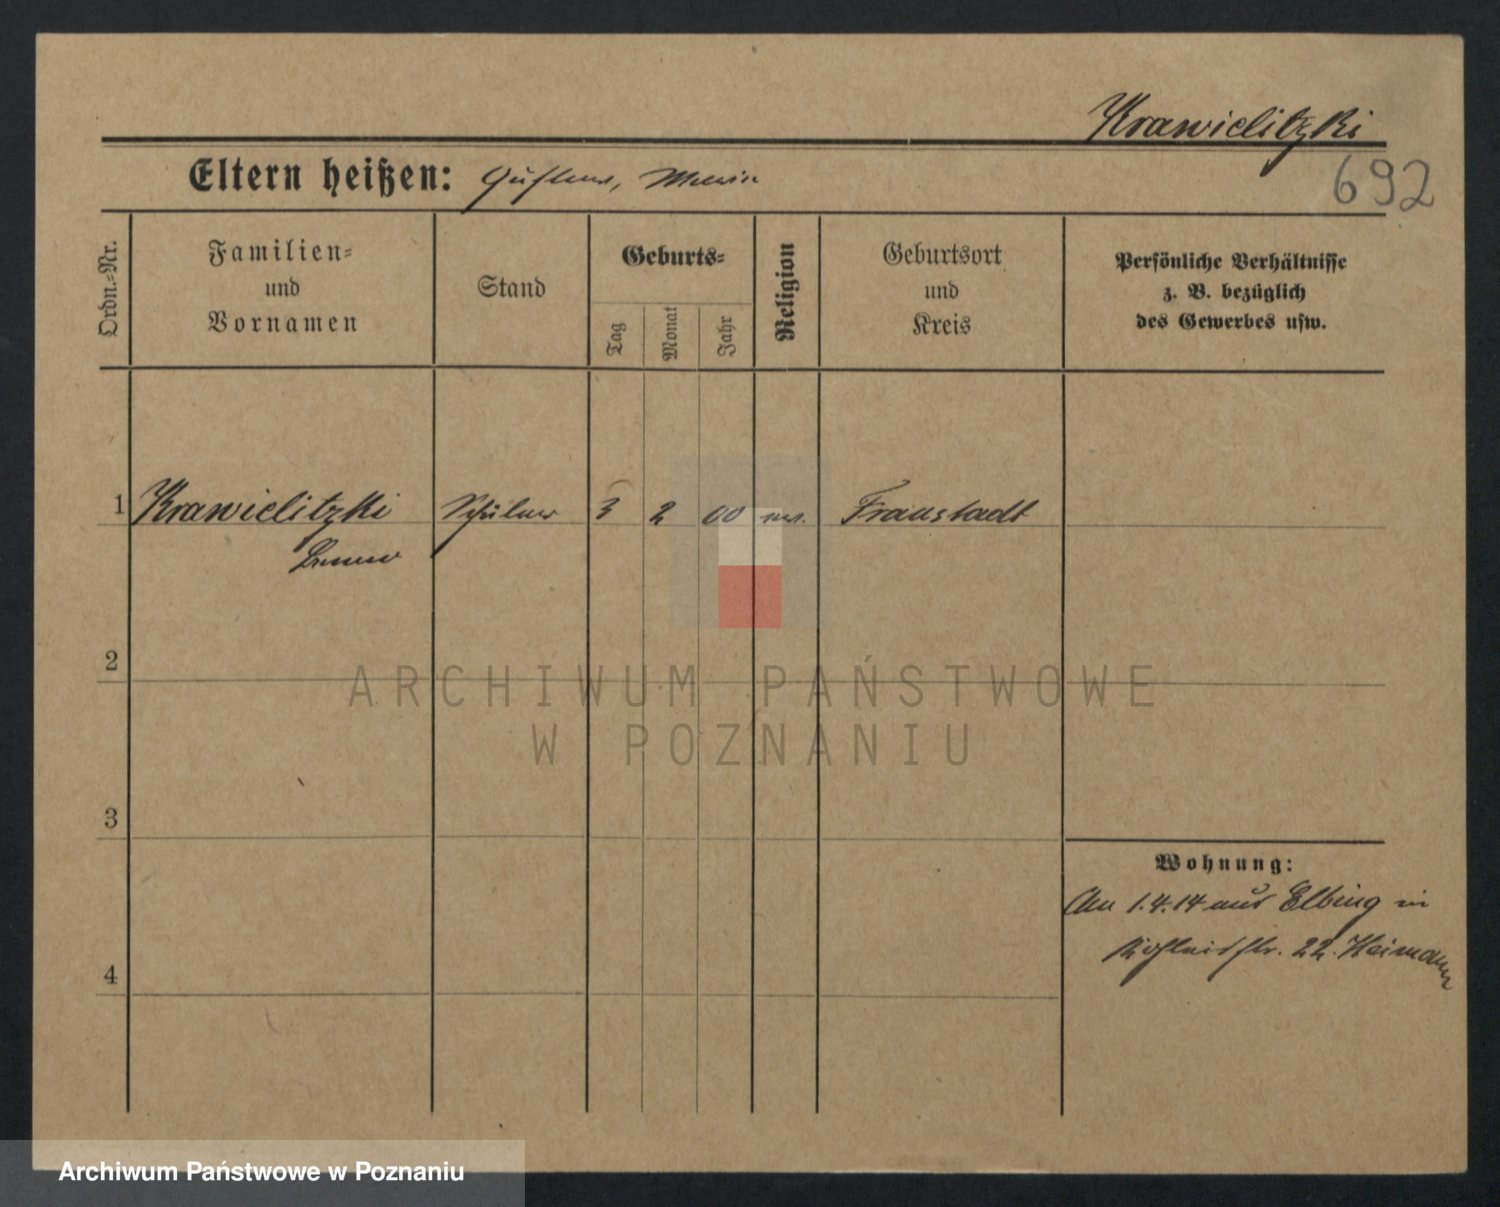 Krawielitzki
692
Eltern heißen: Gustav, Maria
Ordn.-Nr.
Familien-
und
Vornamen
Stand
Geburts-
Tag
Monat
Jahr
Religion
Geburtsort
und
Kreis
Persönliche Verhältnisse
z. B. bezüglich
des Gewerbes usw.
1 Krawielitzki Schüler 3 2 00 Fraustadt
2
3
4
Wohnung:
Am 1.4.14 aus Elbing in
22. Heimann
ARCHIWUM PAŃSTWOWE
W POZNANIU
Archiwum Państwowe w Poznaniu